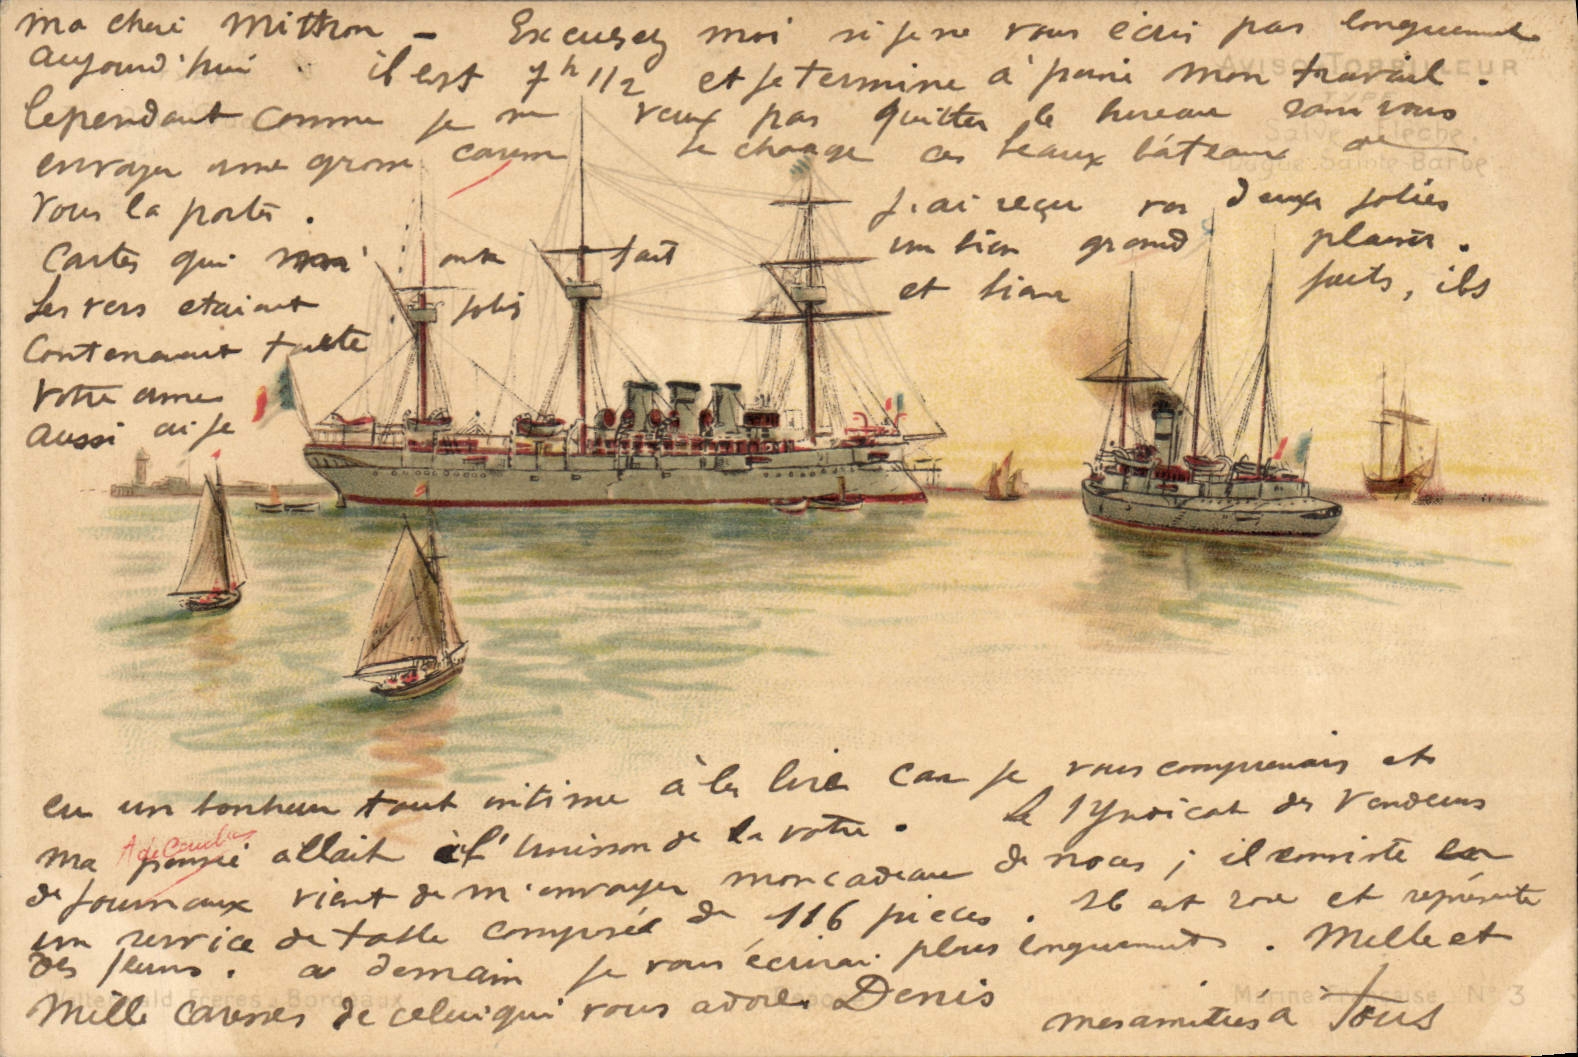 ma cheri Mitton – Excusez moi si je ne vous écris pas longuement
aujourd'hui. il est 7h 1/2 et je termine à peine mon travail.
Cependant comme je ne veux pas quitter le bureau sans vous
envoyer une grosse caresse je charge ces beaux bâteaux de
vous la porter. J'ai reçu vos deux jolies
cartes qui m'ont fait un bien grand plaisir.
Les vers etaient jolis et bien faits, ils
contenaient toute
votre ame
aussi ai je
eu un bonheur tout intime à les lire car je vous comprenais et
ma pensée allait à l'unisson de la votre. Le Syndicat des Vendeurs
de Journaux vient de m'envoyer mon cadeau de noces ; il consiste en
un service de table composé de 116 pièces. Il est rose et représente
des fleurs. a demain je vous écrirai plus longuement. Mille et
Mille caresses de celui qui vous adore Denis
mes amitiés à Tous
AVISO-TORPILLEUR
TYPE
Salve. Flèche.
Dague. Sainte-Barbe
Wetterwald Frères - Bordeaux
Déposé
Marine Française N° 3